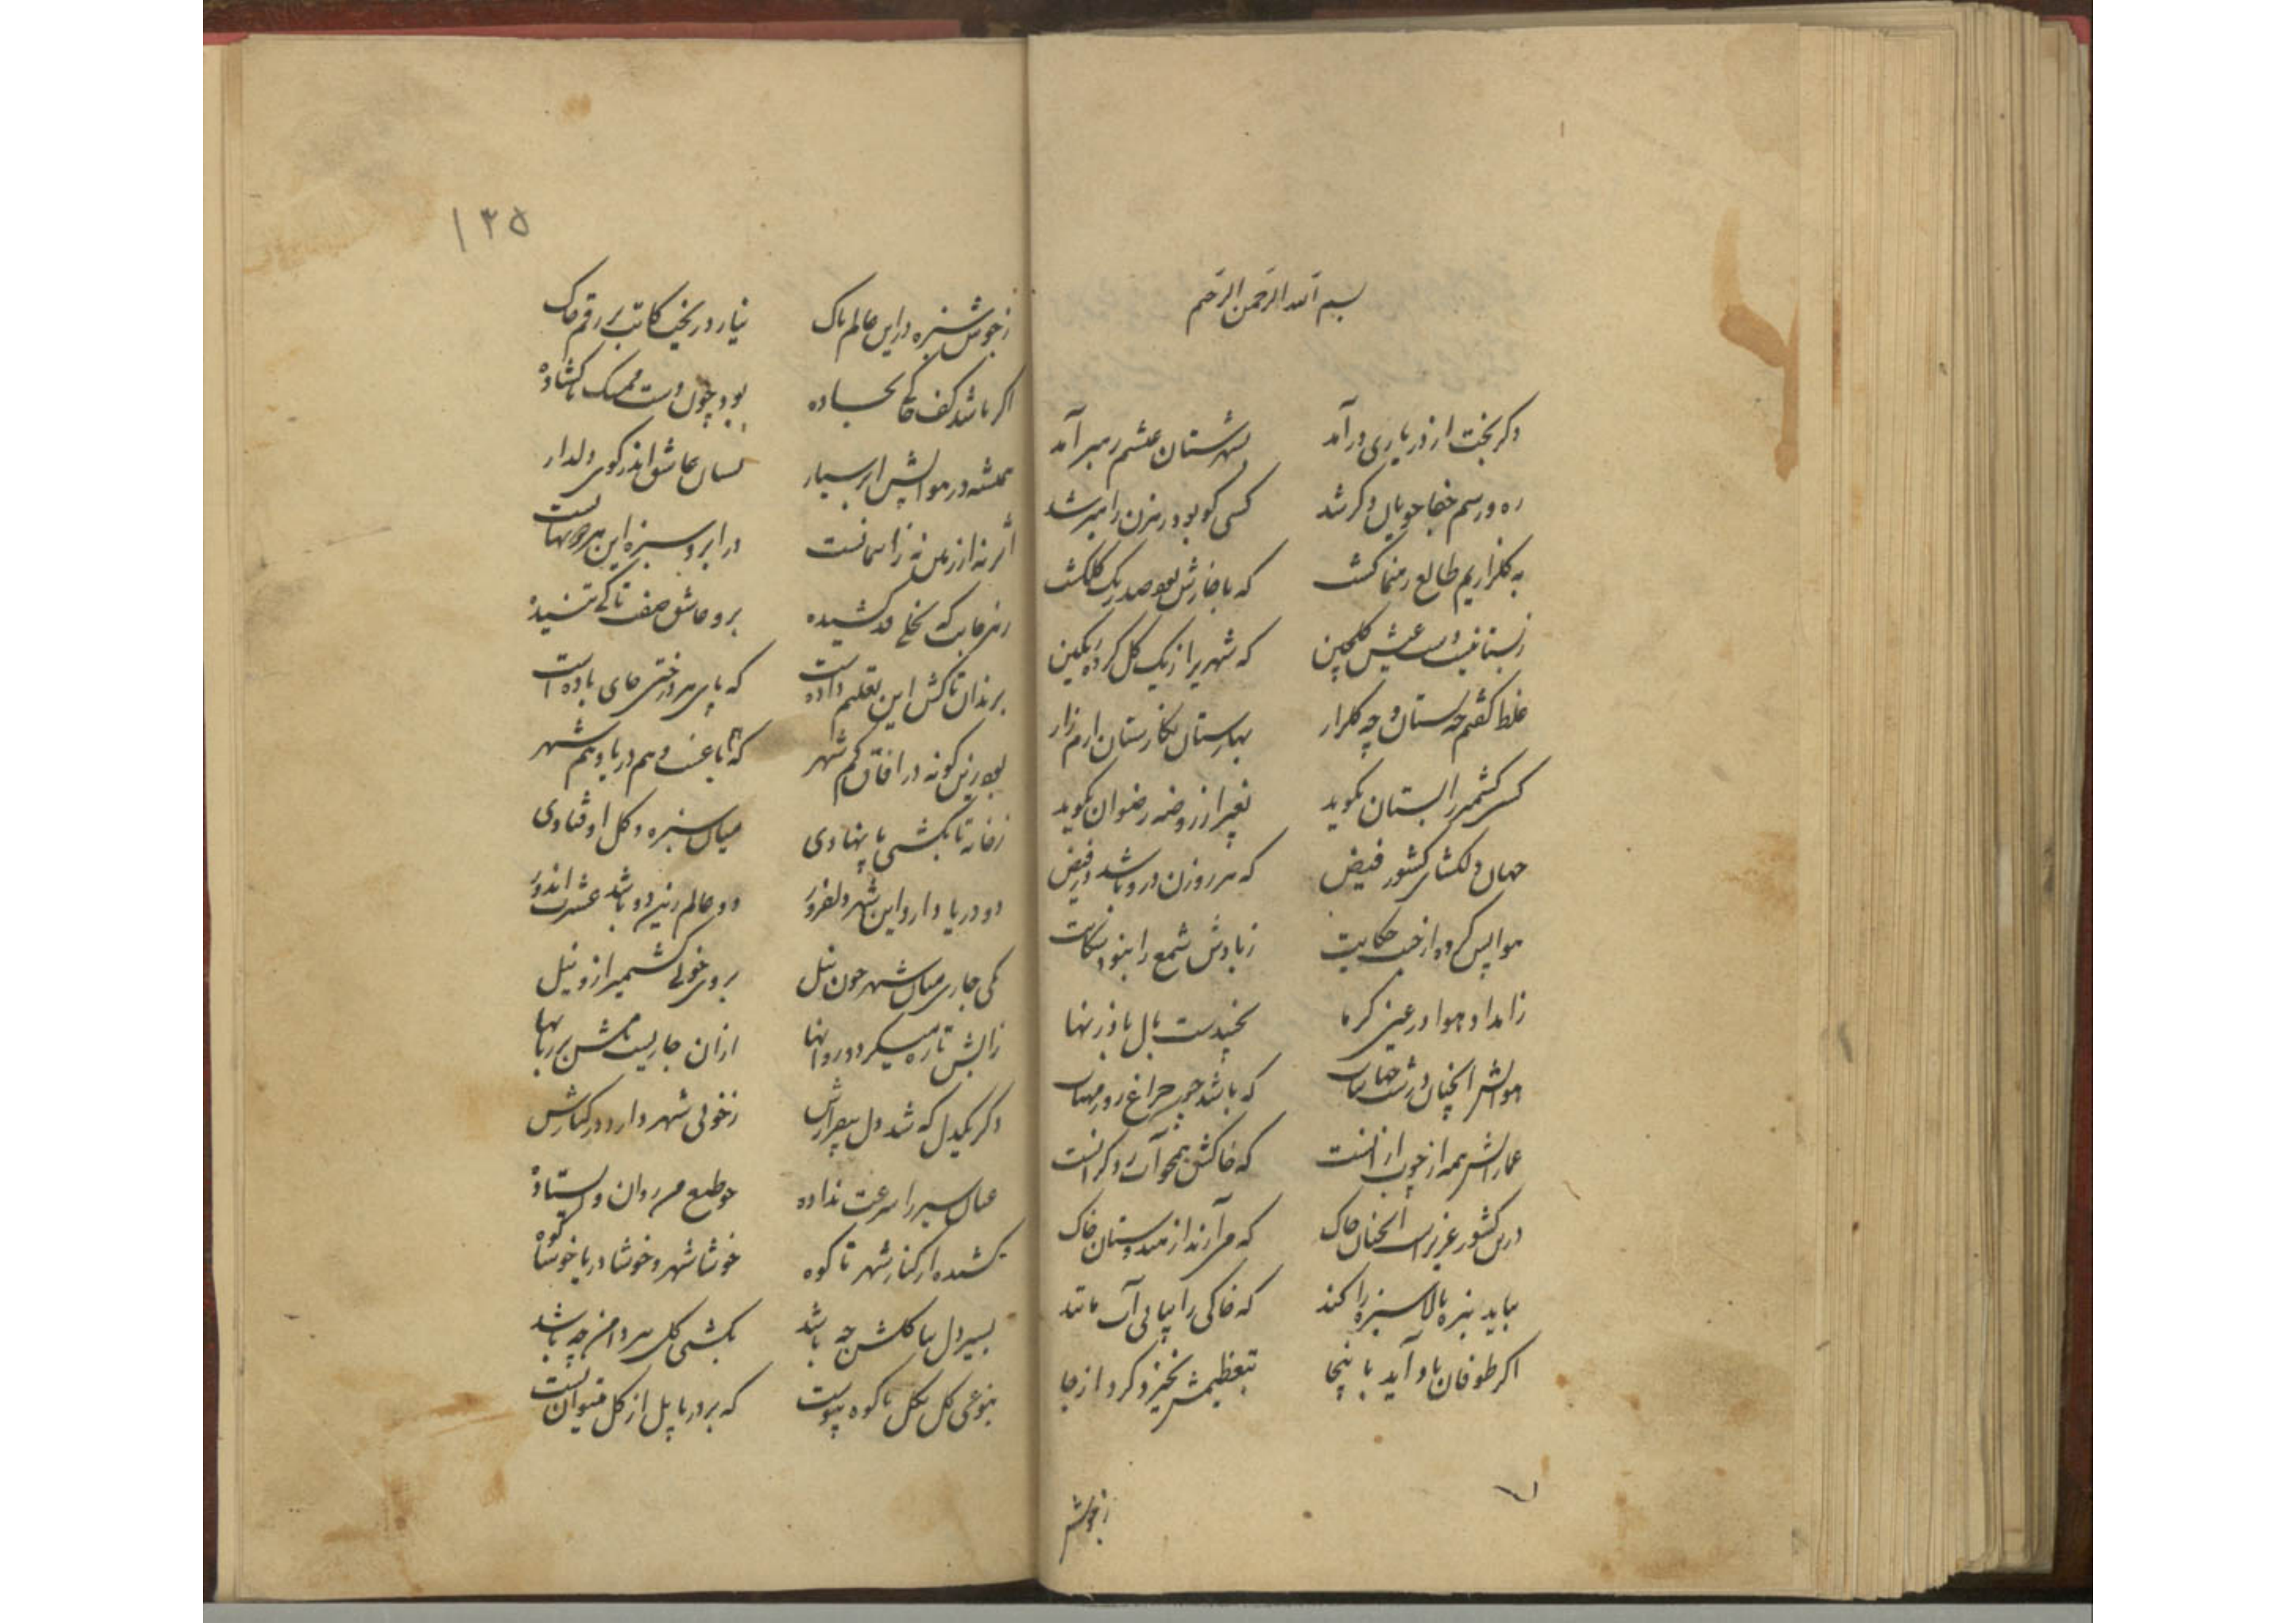 بسم الله الرحمن الرحیم
دکر بخت از در یاری درآمد بشهرستان عشقم رهبر آمد
ره و رسم جفا جویان دکر شد کسی کو بود رهزن راهبر شد
به کلزاریم طالع رهنما کشت که با خارش بود صد رنک کلکشت
که شهریرا ز یک کل کرده رنکین
غلط کفتم چه بستان و چه کلزار بهارستان نکارستان ارم زار
کسی کشمیر را بستان نکوید بغیر از روضه رضوان نکوید
جهان دلکشای کشور فیض که هر روزن درو باشد در فیض
هوایش کرده از جنت حکایت ز بادش شمع را نبود شکایت
ز امداد هوا در عین کرما بجنبد ست بال بادزنها
هوایش آنچنان در شب که باشد چون چراغ روز
عماراتش همه از چوب از آنست که خاکش همچو آب رو کرانست
درین کشور عزیز است آنچنان خاک که می‌آرند از هندوستان خاک
بباید نیزه بالا سبزه را کند که خاکی را بیابی آب مانند
اکر طوفان باد آید باینجا بتعظیمش نخیزد کرد از جا
ز جوش
۱۳۵
ز جوش سبزه در این عالم پاک نیارد ریخت کاتب بر رقم خاک
اکر باشد کف خاکی بود چون دست ممسک ناکشاده
همیشه در هوایش ابر بسیار بسان عاشق اندر کوی دلدار
اثر نه از زمین نه ز آسمانست در ابر و سبزه این هر دو نهانست
بهر جانب که نخلی قد کشیده برو عاشق صفت تاکی تنیده
برندان تاکش این تعلیم داده است که پای هر درختی جای باده است
بود زین کونه در آفاق کم شهر که هم باغست و هم دریا و هم شهر
ز خانه تا بکشتی پا نهادی میان سبزه و کل اوفتادی
دو دریا دارد این شهر دلفروز دو عالم زین دو باشد عشرت اندوز
یکی جاری میان شهر چون نیل بروی خوبی کشمیر ازو نیل
ز آبش تازه میکردد روانها از آن جاریست نامش بر زبانها
دکر یک دل که شد دل بیقرارش ز خوبی شهر دارد در کنارش
عنان سیر را سرعت نداده چو طبع من روان و ایستاده
کشیده از کنار شهر تا کوه خوشا شهر و خوشا دریا خوشا کوه
بسیر دل بیا کلشن چه باشد بکشتی کل بر دامن چه باشد
بنوعی کل بکل تا کوه پیوست که بر دریا پل از کل میتوان بست